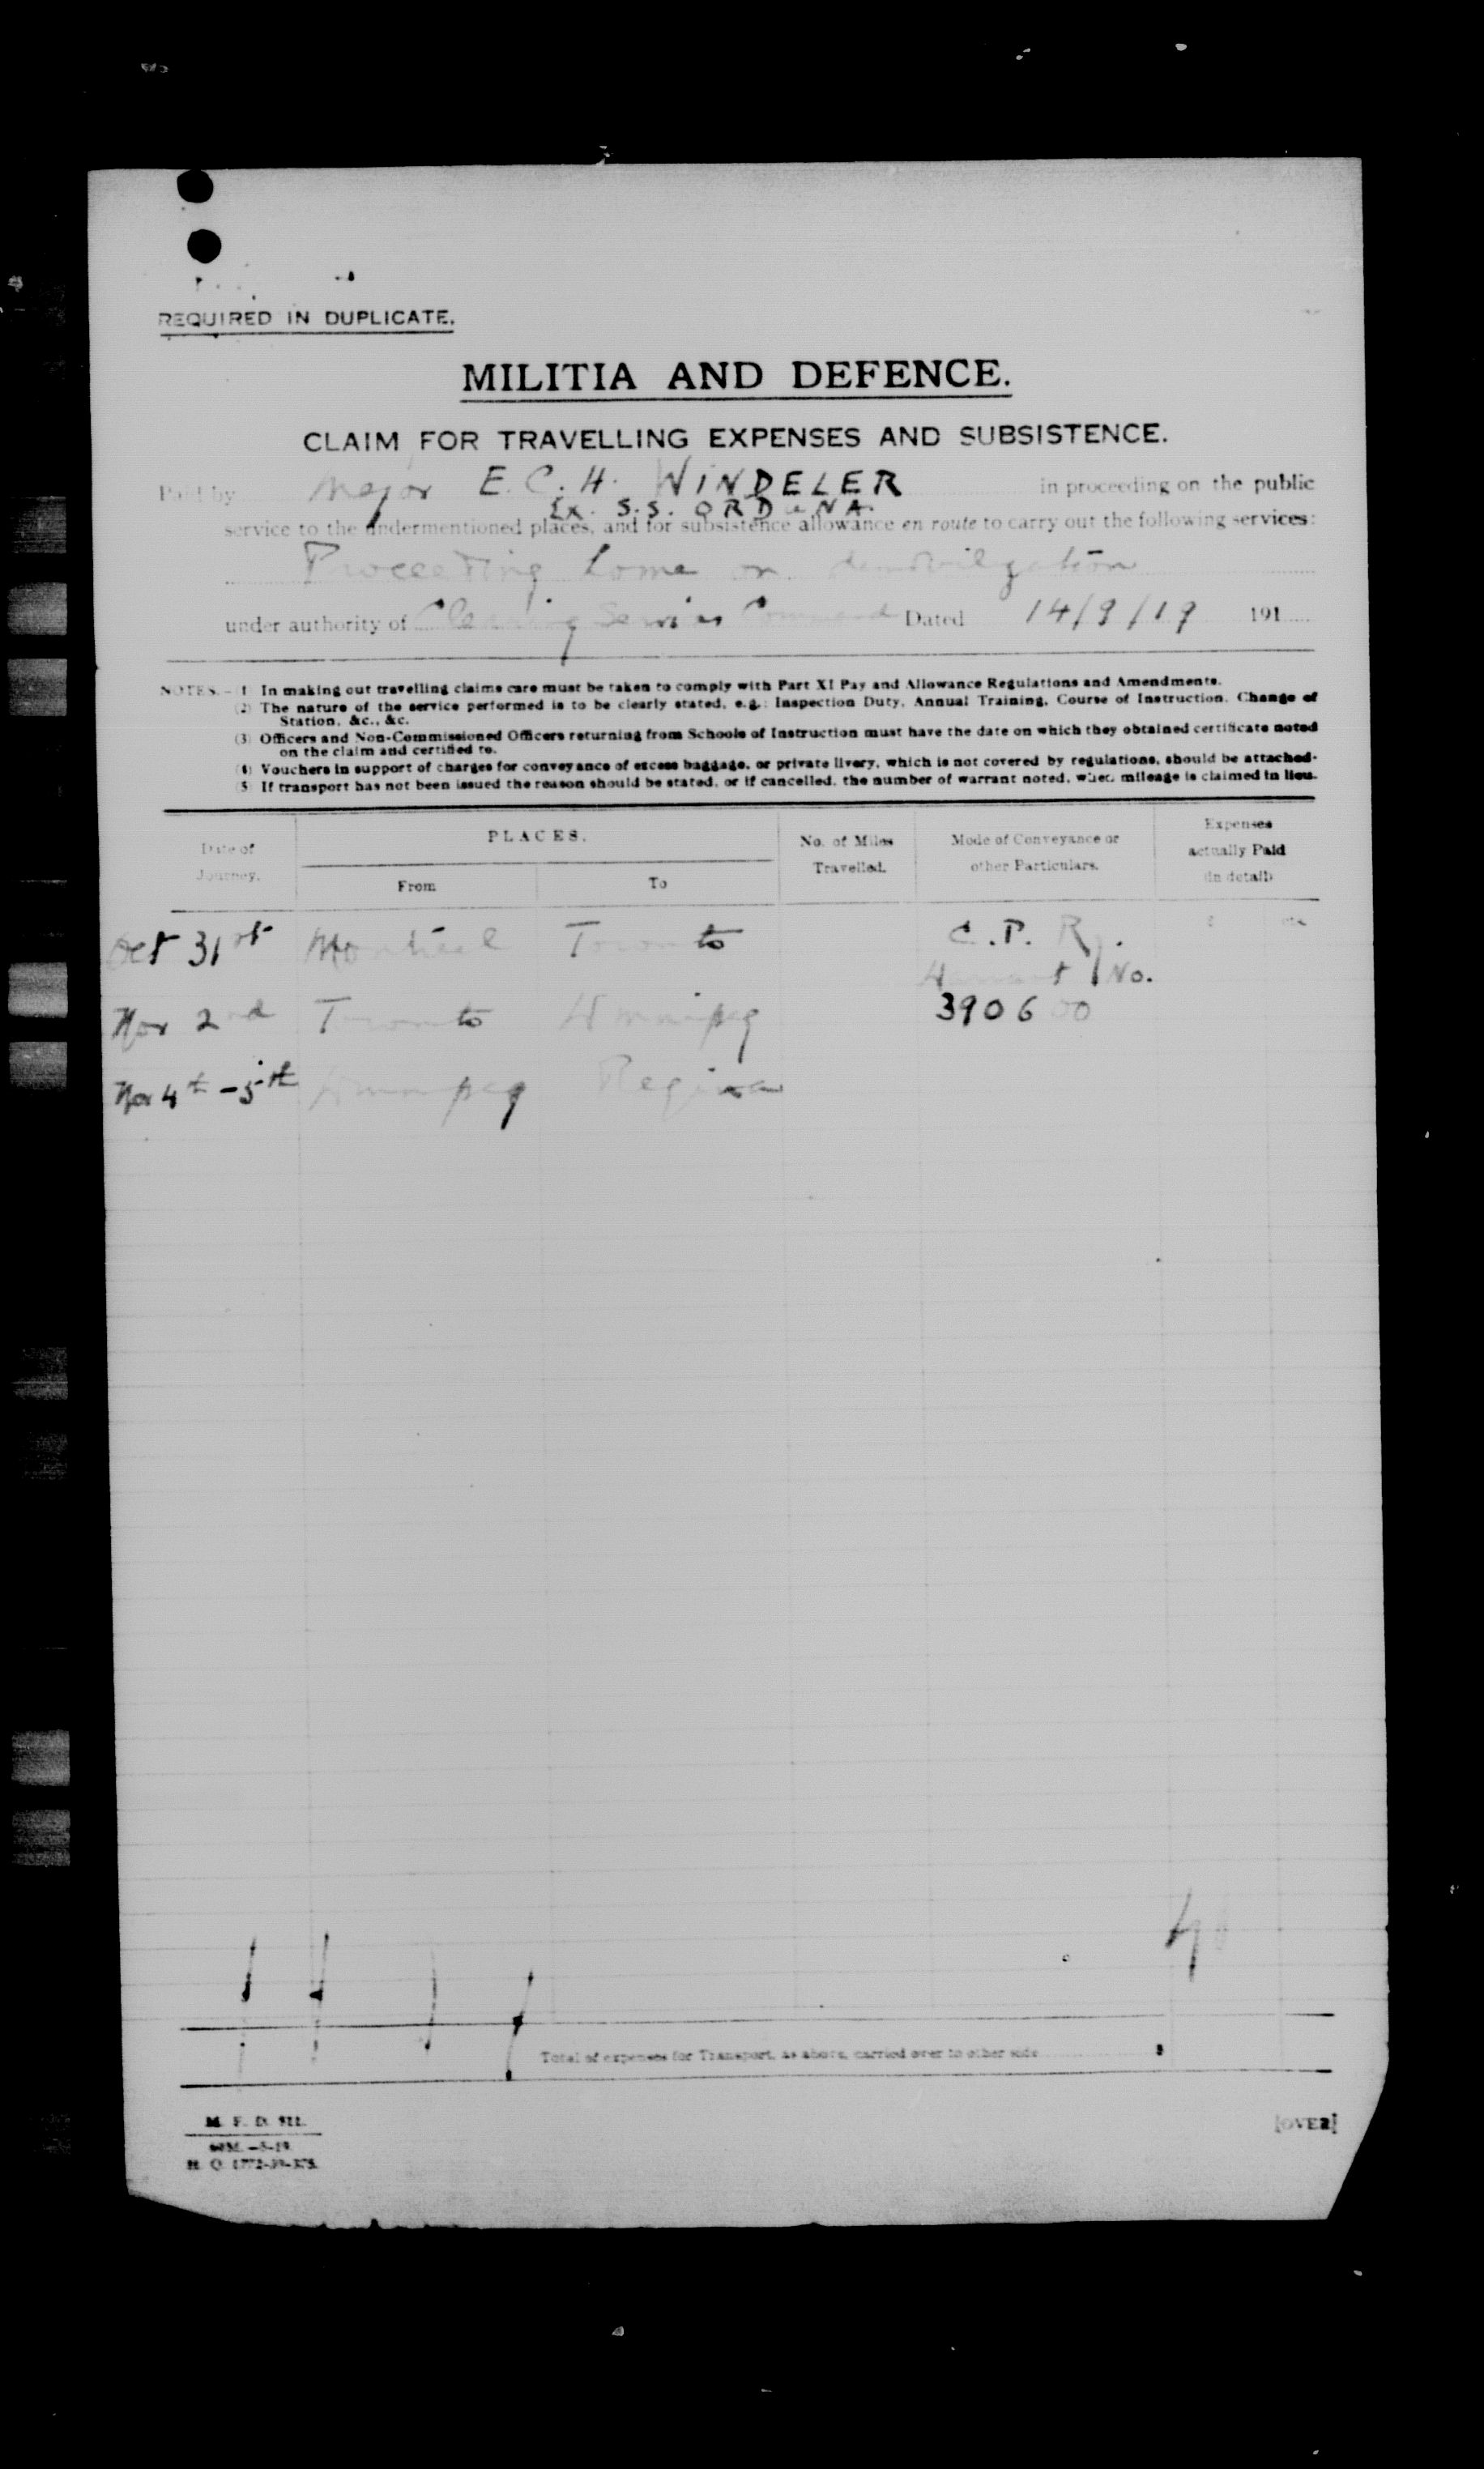 REQUIRED IN DUPLICATE.
MILITIA AND DEFENCE.
CLAIM FOR TRAVELLING EXPENSES AND SUBSISTENCE.
Paid by Major E. C. H. WINDELER in proceeding on the public
Ex. S.S. ORDUNA.
service to the undermentioned places, and for subsistence allowance en route to carry out the following services:
Proceeding home on demobilization
under authority of Clearing Services Command Dated 14/9/19 191
NOTES.—(1) In making out travelling claims care must be taken to comply with Part XI Pay and Allowance Regulations and Amendments.
(2) The nature of the service performed is to be clearly stated, e.g.: Inspection Duty, Annual Training, Course of Instruction, Change of
Station, &c., &c.
(3) Officers and Non-Commissioned Officers returning from Schools of Instruction must have the date on which they obtained certificate noted
on the claim and certified to.
(4) Vouchers in support of charges for conveyance of excess baggage, or private livery, which is not covered by regulations, should be attached.
(5) If transport has not been issued the reason should be stated, or if cancelled, the number of warrant noted, when mileage is claimed in lieu.
Date of Journey. PLACES. From To No. of Miles Travelled. Mode of Conveyance or other Particulars. Expenses actually Paid (in detail)
Oct 31st Montreal Toronto C.P. Ry.
Warrant No.
Nov 2nd Toronto Winnipeg 390600
Nov 4th - 5th Winnipeg Regina
Total of expenses for Transport, as above, carried over to other side
M. F. D. 811.
H. Q. 1772-39-375.
[OVER]